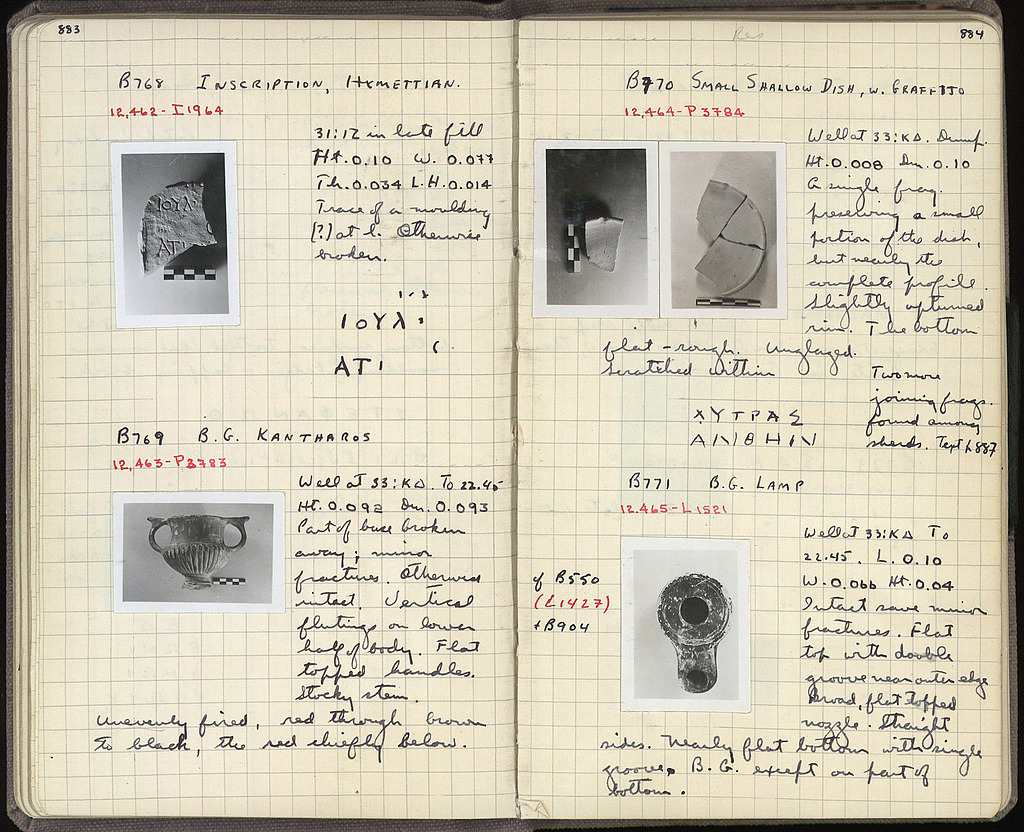 883
B768 INSCRIPTION, HYMETTIAN.
12,462-I 1964
31:12 in late fill
Ht. 0.10 W. 0.077
Th. 0.034 L.H. 0.014
Trace of a moulding
[?] at l. Otherwise
broken.
ΙΟΥΛ
ΑΤΙ
B769 B.G. KANTHAROS
12,463-P3783
Well at 33:ΚΔ. To 22.45
Ht. 0.092 Dm. 0.093
Part of base broken
away; minor
fractures. Otherwise
intact. Vertical
flutings on lower
half of body. Flat
topped handles.
Stocky stem.
Unevenly fired, red through brown
to black, the red chiefly below.
884
Res
B770 SMALL SHALLOW DISH, W. GRAFFITO
12,464-P3784
Well at 33:ΚΔ. Dump.
Ht. 0.008 Dm. 0.10
A single frag.
preserving a small
portion of the dish,
but nearly the
complete profile.
Slightly upturned
rim. The bottom
flat - rough. Unglazed.
Scratched within
ΧΥΤΡΑΣ
ΑΝΘΗΙΝ
Two more
joining frags.
found among
sherds. Text p. 887
B771 B.G. LAMP
12,465-L1521
Well at 33:ΚΔ To
22.45. L. 0.10
W. 0.066 Ht. 0.04
Intact save minor
fractures. Flat
top with double
groove near outer edge
Broad, flat topped
nozzle. Straight
sides. Nearly flat bottom with single
groove. B.G. except on part of
bottom.
cf B550
(L1427)
+B904